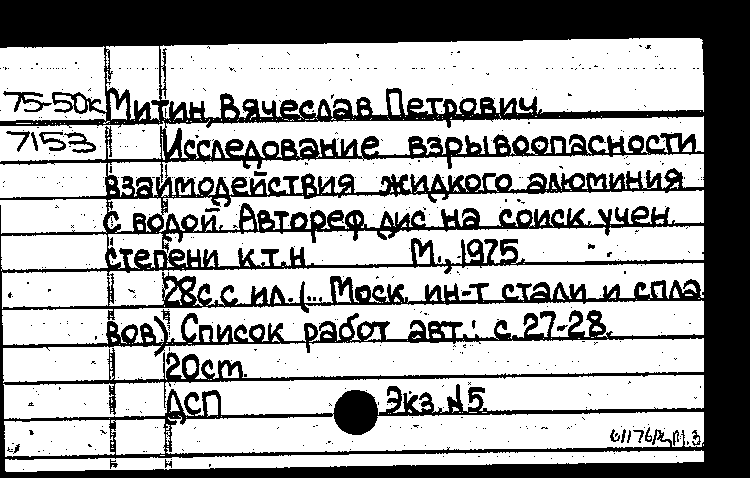 75-50к Митин, Вячеслав Петрович.
7153 Исследование взрывоопасности
взаимодействия жидкого алюминия
с водой. Автореф. дис на соиск. учен.
степени к.т.н. М., 1975.
28с. с ил. (... Моск. ин-т стали и спла-
вов). Список работ авт.: с. 27-28.
20cm.
ДСП Экз. №5.